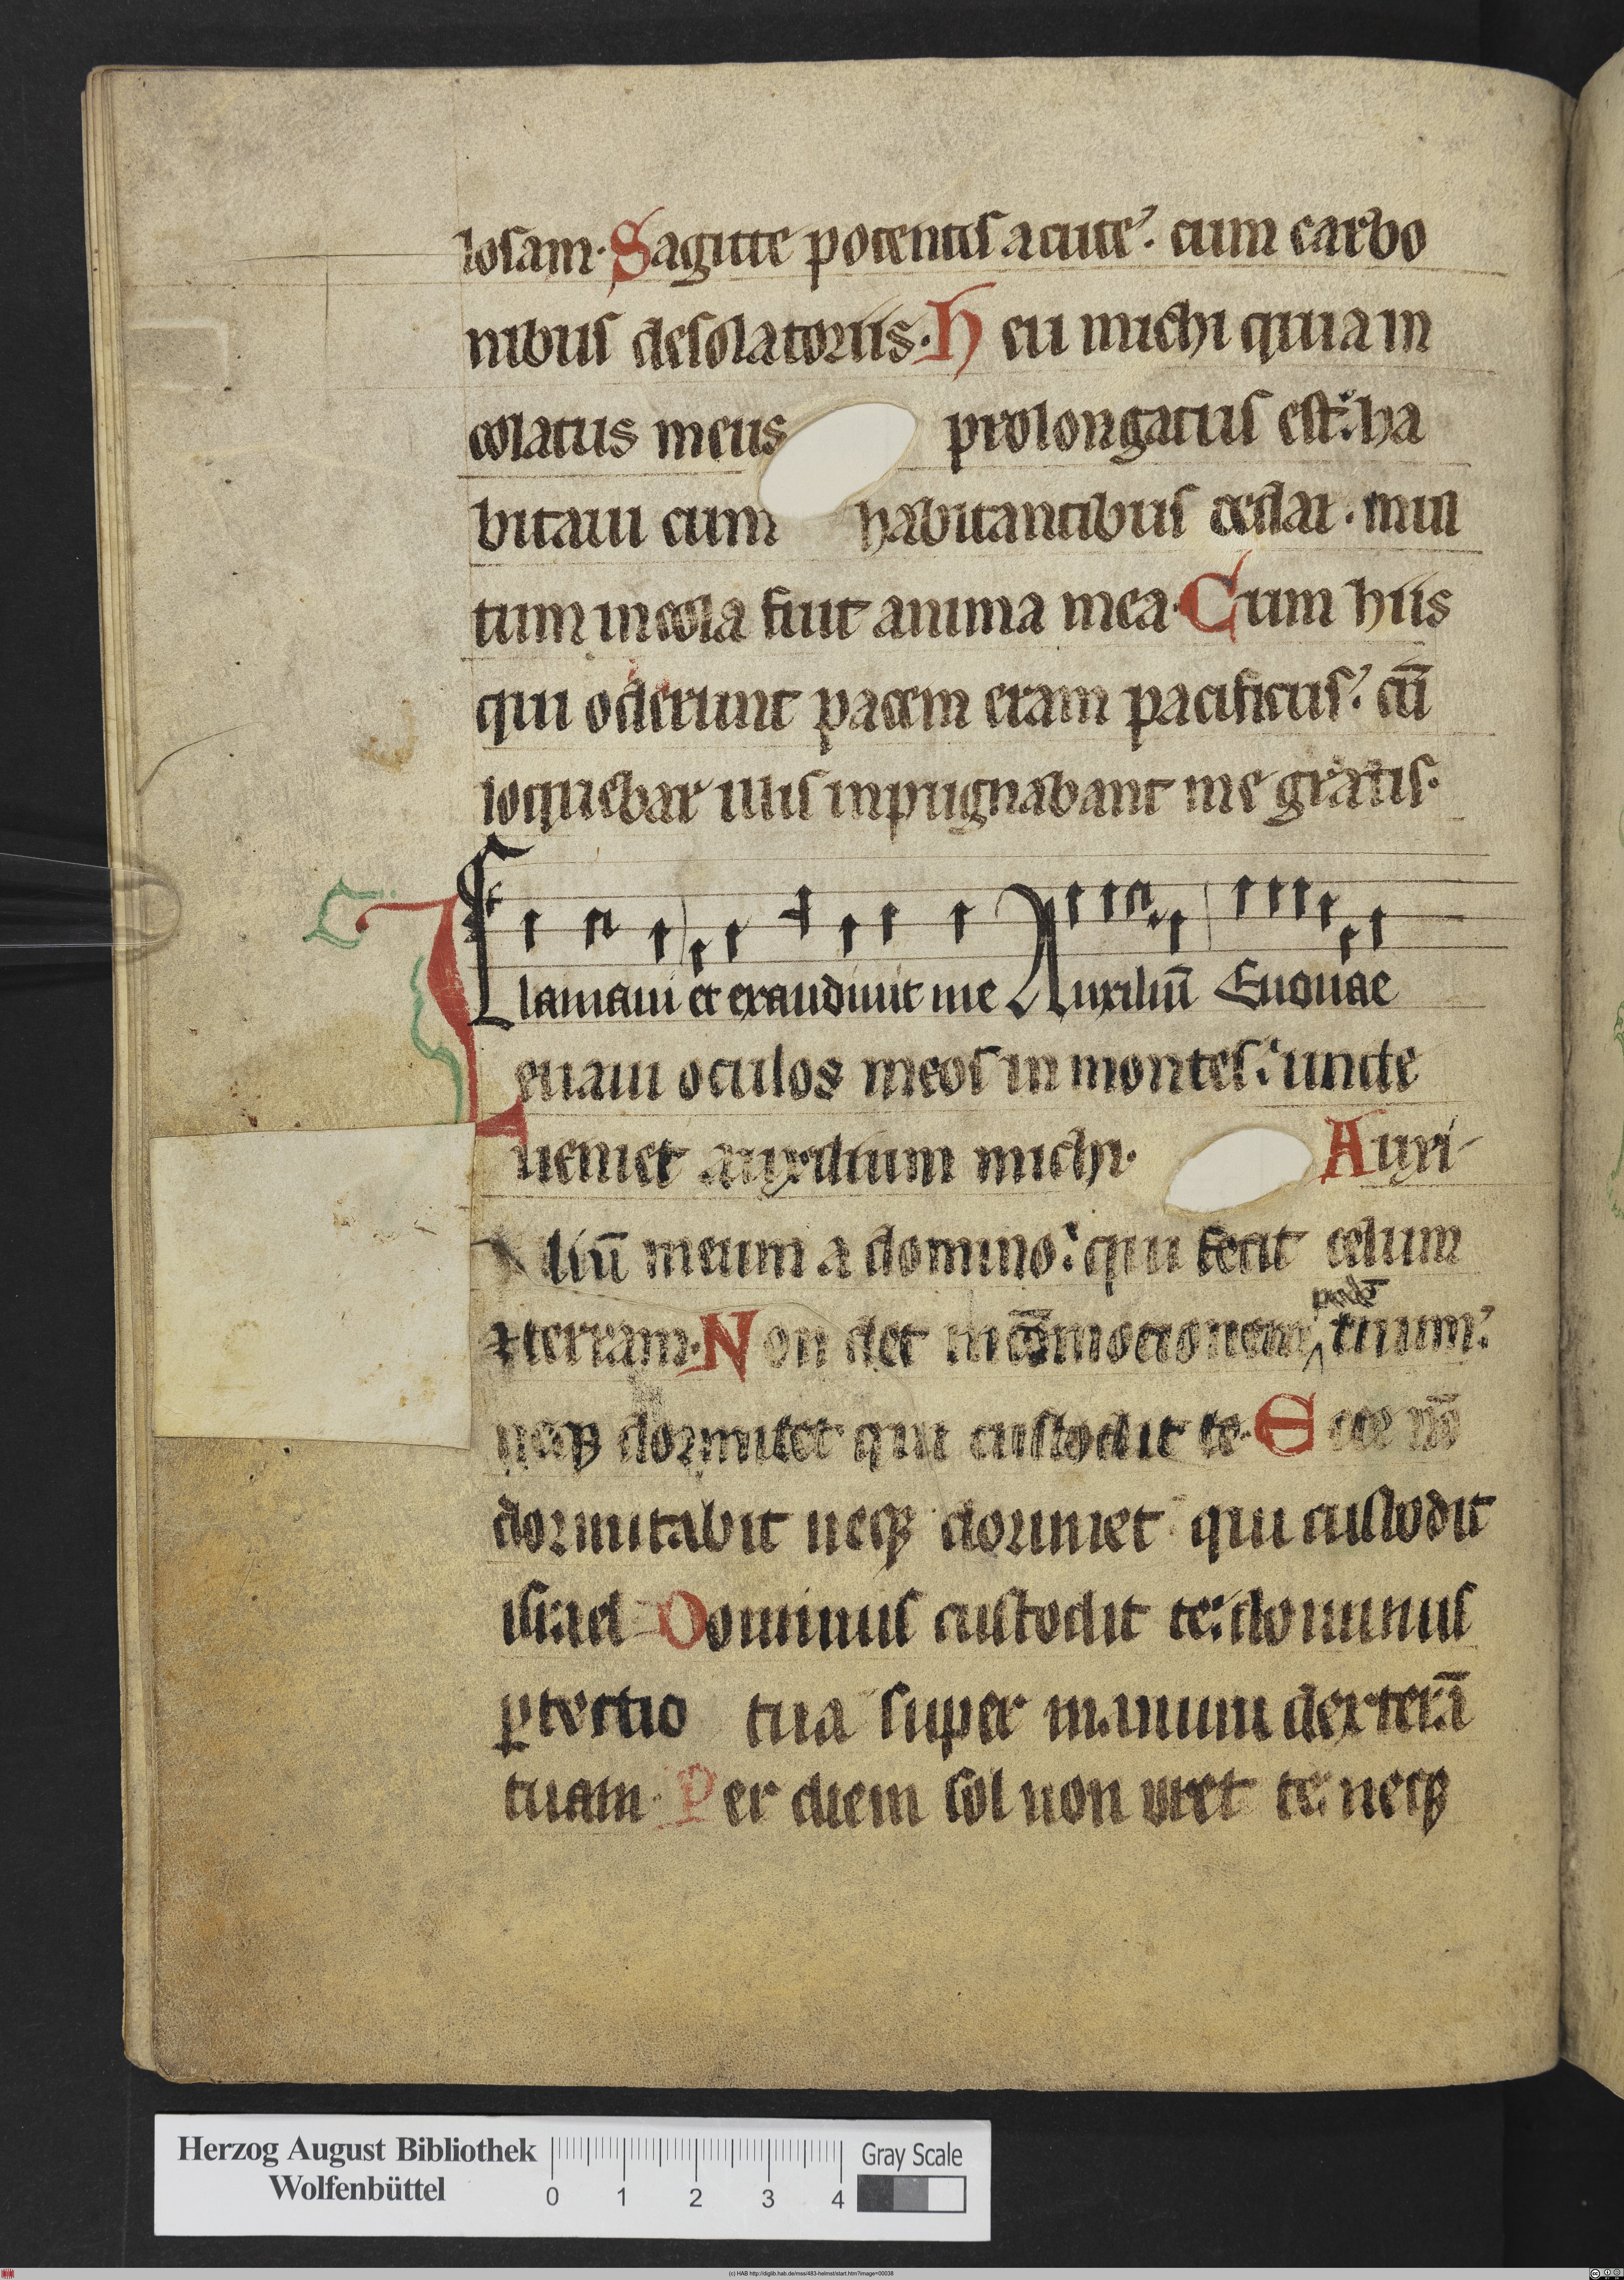 losam. Sagitte potentis acute. cum carbo
nibus desolatoriis. Heu michi quia in
colatus meus prolongatus est: ha
bitaui cum habitantibus cedar. mul
tum incola fuit anima mea. Cum hiis
qui oderunt pacem eram pacificus? cū
loquebar illis inpugnabant me gratis.
Clamaui et exaudiuit me Auxiliū Euouae
Leuaui oculos meos in montes: unde
ueniet auxilium michi. Auxi-
liū meum a domino: qui fecit celum
⁊ terram. Non det in cōmocionem pedē tuum:
neqꝫ dormitet qui custodit te. Ecce nō
dormitabit neqꝫ dormiet qui custodit
israel Dominus custodit te: dominus
ꝓtectio tua super manum dexterā
tuam. Per diem sol non uret te: neqꝫ
Herzog August Bibliothek
Wolfenbüttel
0 1 2 3 4
Gray Scale
(c) HAB http://diglib.hab.de/mss/483-helmst/start.htm?image=00038